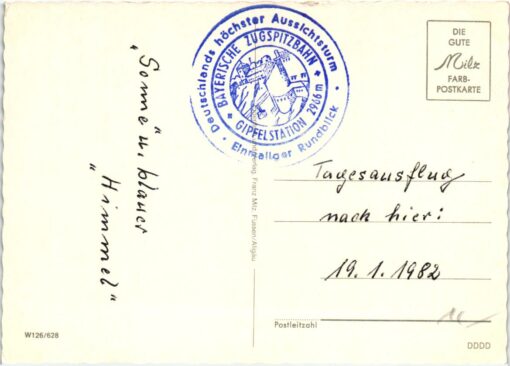 Deutschlands höchster Aussichtsturm
BAYERISCHE ZUGSPITZBAHN
GIPFELSTATION 2966 m
Einmaliger Rundblick
DIE
GUTE
Milz
FARB-
POSTKARTE
"Sonne" u. blauer
"Himmel"
Tagesausflug
nach hier:
19.1.1982
Franz Milz, Füssen/Allgäu
Postleitzahl
W126/628
DDDD